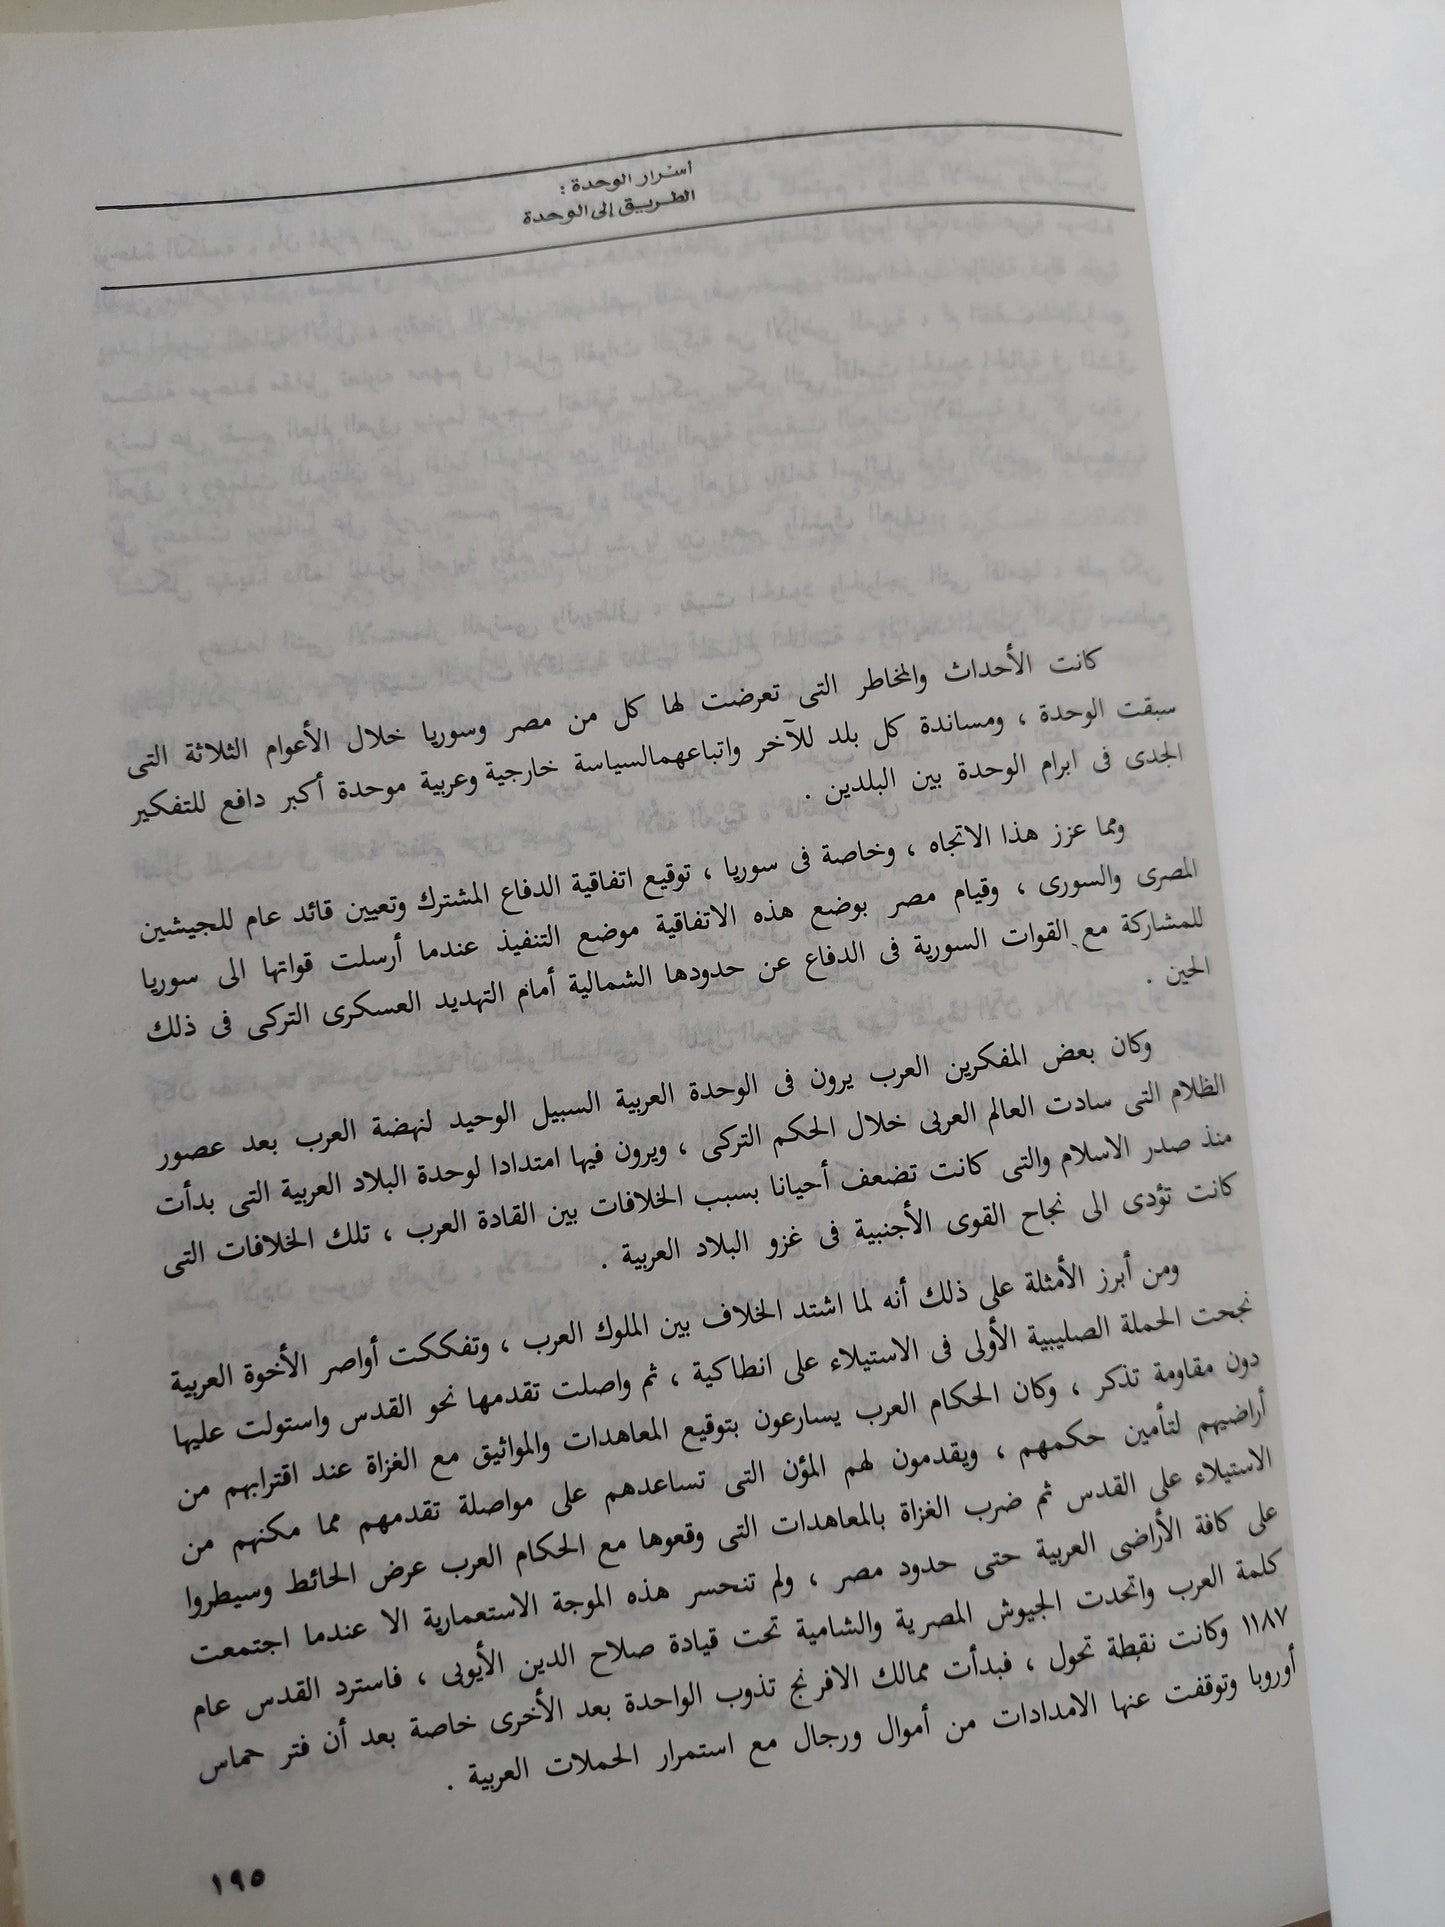 أسرار الوحدة :
الطريق إلى الوحدة
كانت الأحداث والمخاطر التى تعرضت لها كل من مصر وسوريا خلال الأعوام الثلاثة التى
سبقت الوحدة ، ومساندة كل بلد للآخر واتباعهمالسياسة خارجية وعربية موحدة أكبر دافع للتفكير
الجدى فى ابرام الوحدة بين البلدين .
ومما عزز هذا الاتجاه ، وخاصة فى سوريا ، توقيع اتفاقية الدفاع المشترك وتعيين قائد عام للجيشين
المصرى والسورى ، وقيام مصر بوضع هذه الاتفاقية موضع التنفيذ عندما أرسلت قواتها الى سوريا
للمشاركة مع القوات السورية فى الدفاع عن حدودها الشمالية أمام التهديد العسكرى التركى فى ذلك
الحين .
وكان بعض المفكرين العرب يرون فى الوحدة العربية السبيل الوحيد لنهضة العرب بعد عصور
الظلام التى سادت العالم العربى خلال الحكم التركى ، ويرون فيها امتدادا لوحدة البلاد العربية التى بدأت
منذ صدر الاسلام والتى كانت تضعف أحيانا بسبب الخلافات بين القادة العرب ، تلك الخلافات التى
كانت تؤدى الى نجاح القوى الأجنبية فى غزو البلاد العربية .
ومن أبرز الأمثلة على ذلك أنه لما اشتد الخلاف بين الملوك العرب ، وتفككت أواصر الأخوة العربية
نجحت الحملة الصليبية الأولى فى الاستيلاء على انطاكية ، ثم واصلت تقدمها نحو القدس واستولت عليها
دون مقاومة تذكر ، وكان الحكام العرب يسارعون بتوقيع المعاهدات والمواثيق مع الغزاة عند اقترابهم من
أراضيهم لتأمين حكمهم ، ويقدمون لهم المؤن التى تساعدهم على مواصلة تقدمهم مما مكنهم من
الاستيلاء على القدس ثم ضرب الغزاة بالمعاهدات التى وقعوها مع الحكام العرب عرض الحائط وسيطروا
على كافة الأراضى العربية حتى حدود مصر ، ولم تنحسر هذه الموجة الاستعمارية الا عندما اجتمعت
كلمة العرب واتحدت الجيوش المصرية والشامية تحت قيادة صلاح الدين الأيوبى ، فاسترد القدس عام
١١٨٧ وكانت نقطة تحول ، فبدأت ممالك الافرنج تذوب الواحدة بعد الأخرى خاصة بعد أن فتر حماس
أوروبا وتوقفت عنها الامدادات من أموال ورجال مع استمرار الحملات العربية .
١٩٥